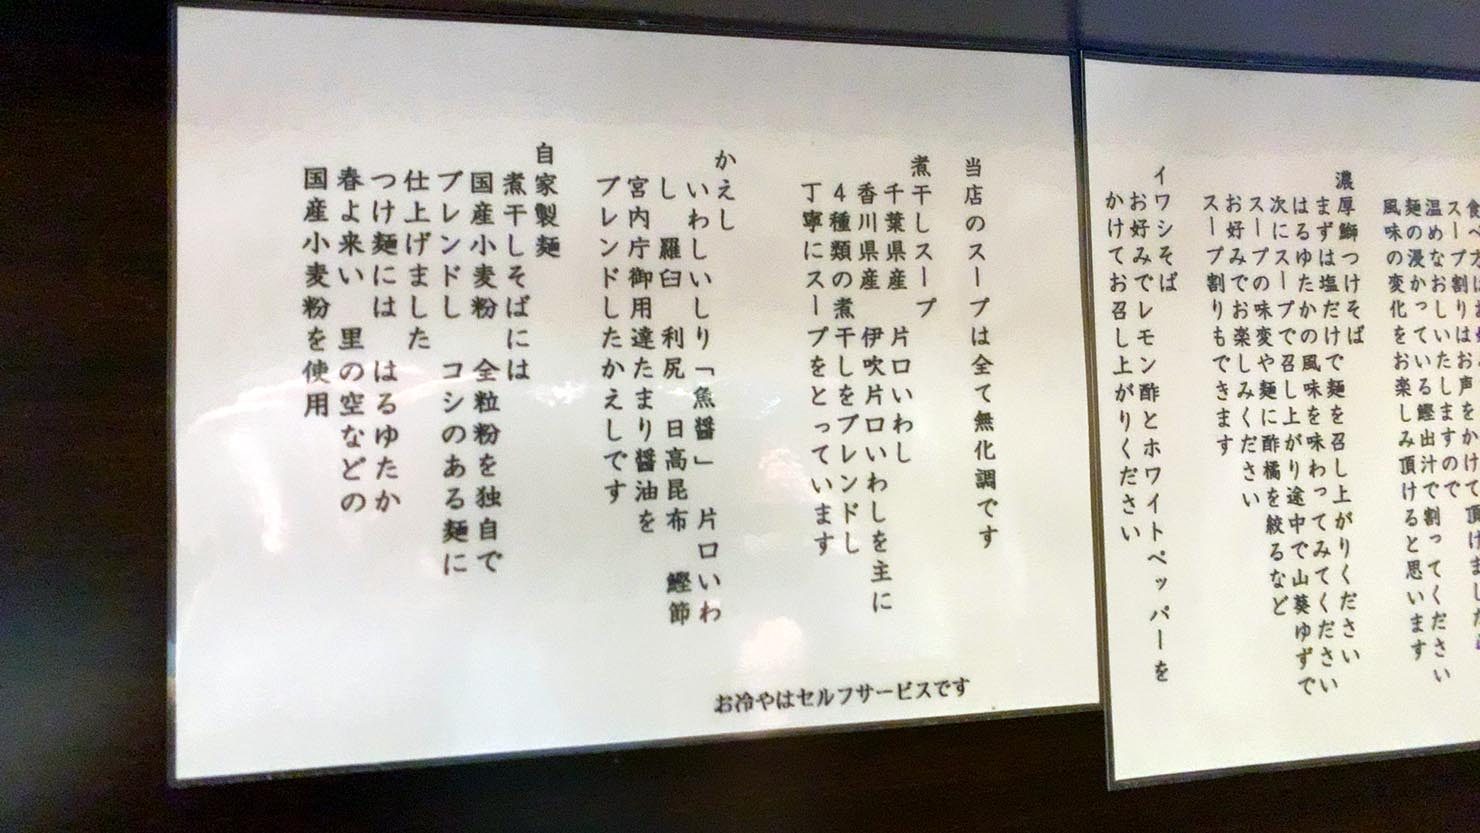 スープ割りはお声をかけて頂けましたら
温めなおしいたしますので
麺の浸かっている鰹出汁で割ってください
風味の変化をお楽しみ頂けると思います
濃厚鰤つけそば
まずは塩だけで麺を召し上がりください
はるゆたかの風味を味わってみてください
次にスープで召し上がり途中で山葵ゆずで
スープの味変や麺に酢橘を絞るなど
お好みでお楽しみください
スープ割りもできます
イワシそば
お好みでレモン酢とホワイトペッパーを
かけてお召し上がりください
当店のスープは全て無化調です
煮干しスープ
千葉県産 片口いわし
香川県産 伊吹片口いわしを主に
4種類の煮干しをブレンドし
丁寧にスープをとっています
かえし
いわしいしり「魚醤」 片口いわ
し 羅臼 利尻 日高昆布 鰹節
宮内庁御用達たまり醤油を
ブレンドしたかえしです
自家製麺
煮干しそばには
国産小麦粉 全粒粉を独自で
ブレンドし コシのある麺に
仕上げました
つけ麺には はるゆたか
春よ来い 里の空などの
国産小麦粉を使用
お冷やはセルフサービスです